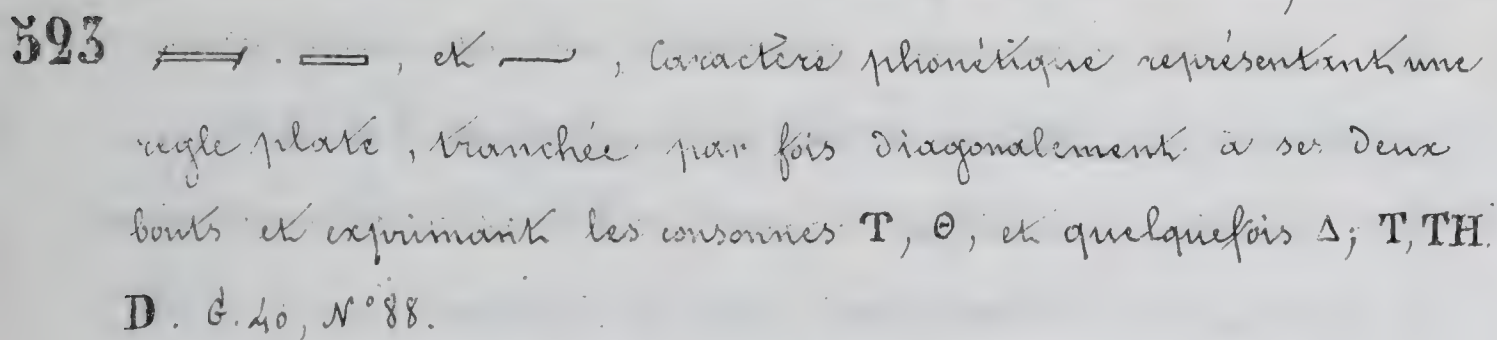 523 , et , Caractère phonétique représentant une
règle plate, tranchée par fois diagonalement à ses deux
bouts et exprimant les consonnes T, Θ, et quelquefois Δ; T, TH.
D. G. 40, N° 88.